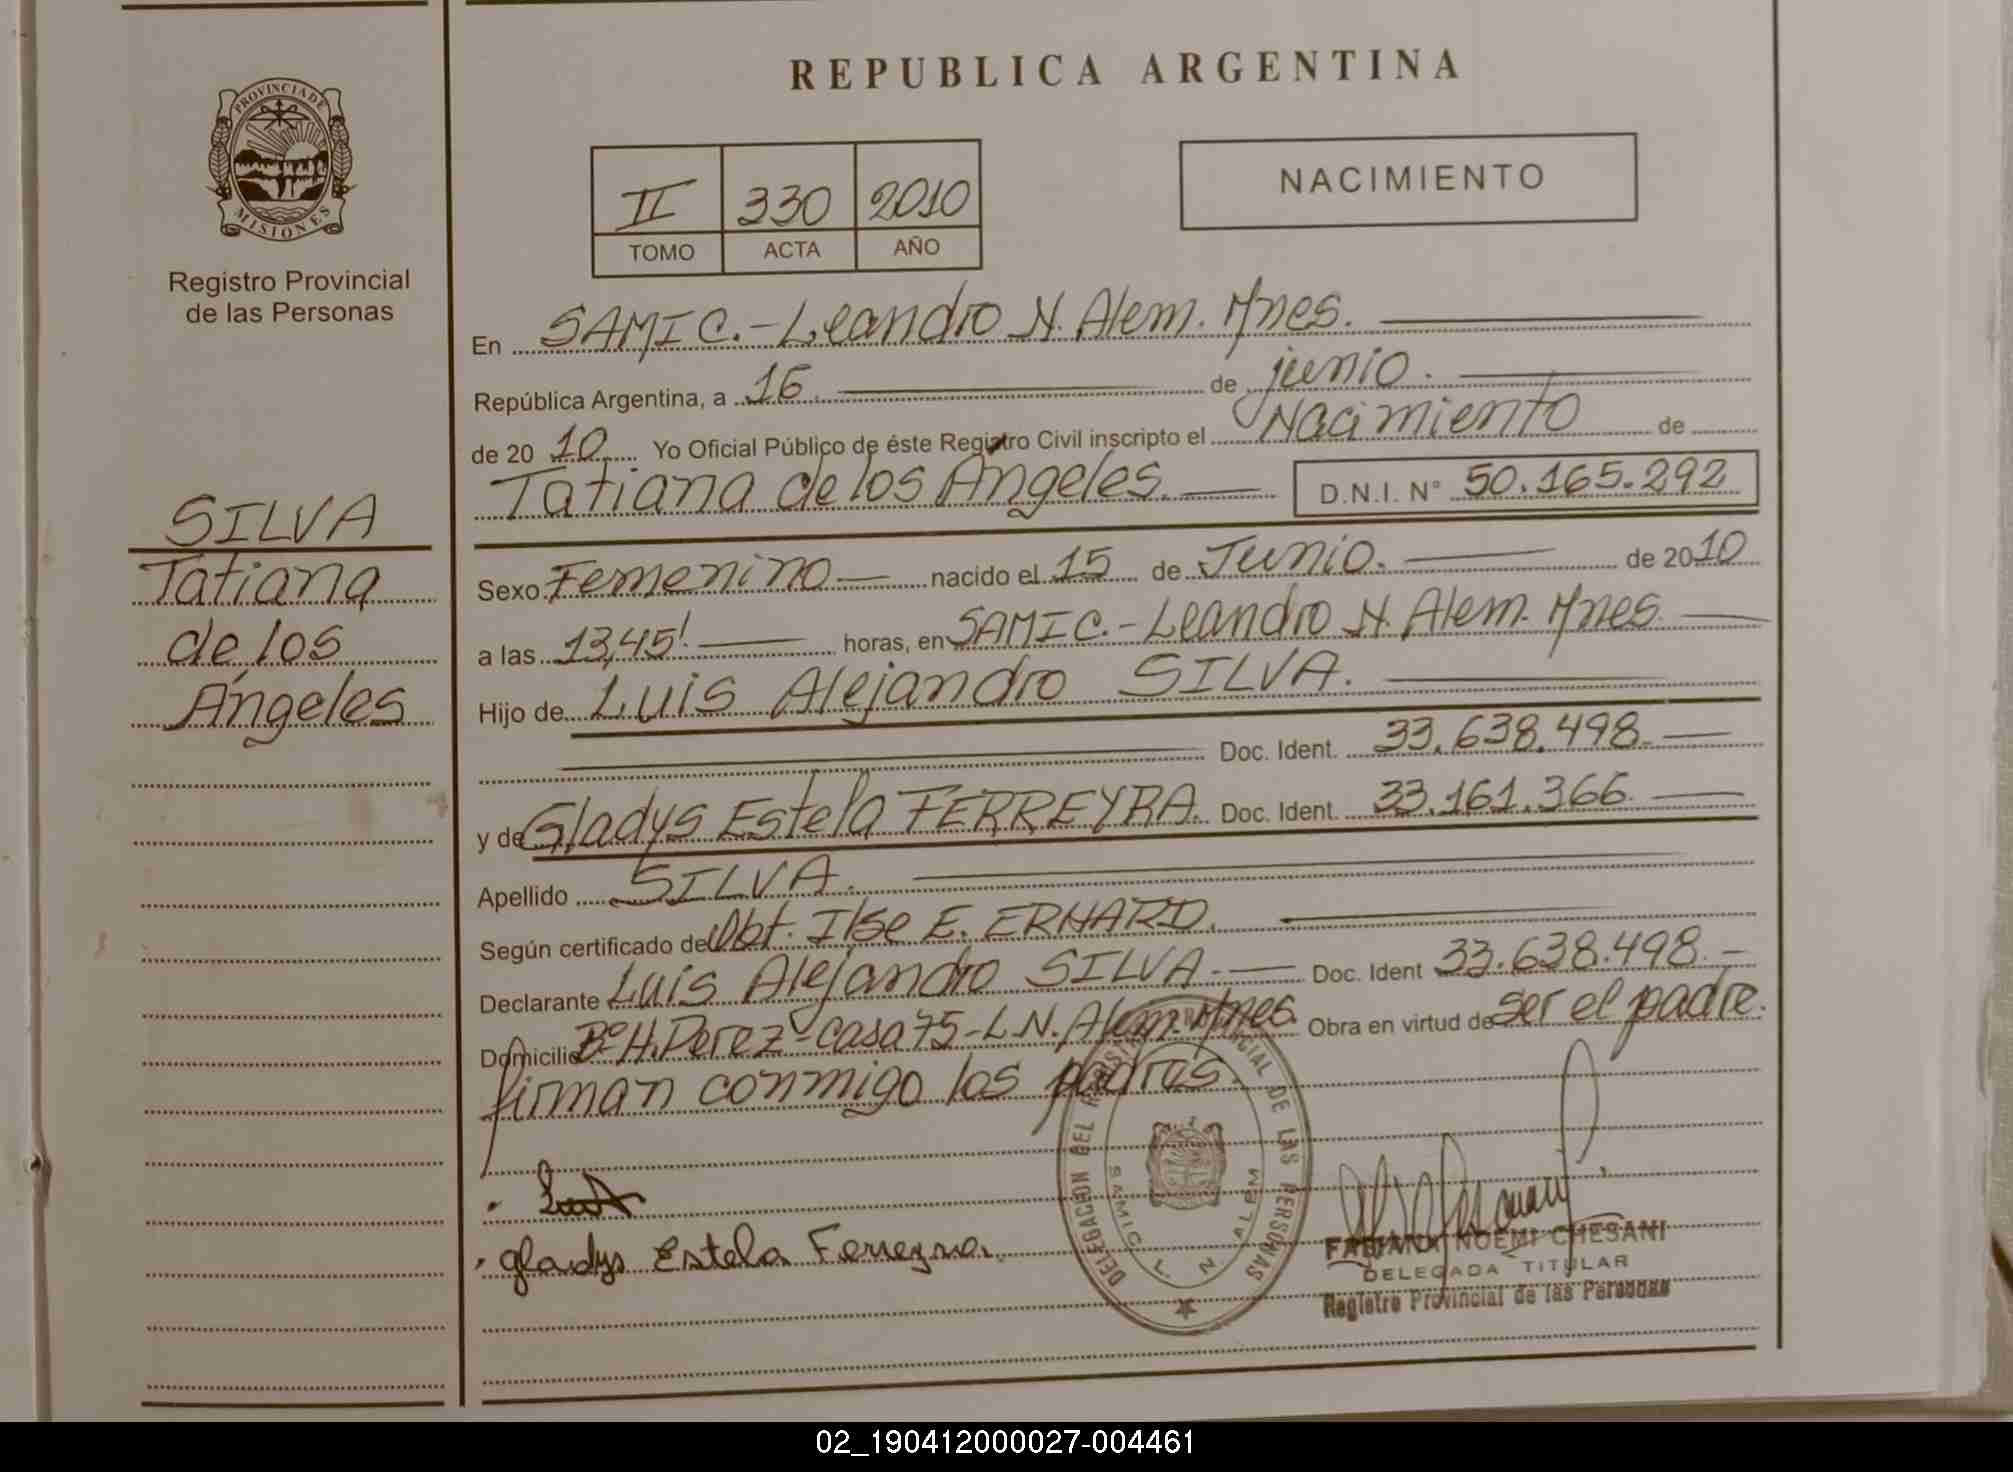 REPUBLICA ARGENTINA
PROVINCIA DE
MISIONES
Registro Provincial
de las Personas
II 330 2010
TOMO ACTA AÑO
NACIMIENTO
SILVA
Tatiana
de los
Angeles
En SAMIC.-Leandro N. Alem. Mnes.
República Argentina, a 16 de junio.
de 20 10 Yo Oficial Público de éste Registro Civil inscripto el Nacimiento de
Tatiana de los Angeles. D.N.I. N° 50.165.292
Sexo Femenino nacido el 15 de Junio. de 2010
a las 13,45! horas, en SAMIC.-Leandro N. Alem. Mnes.
Hijo de Luis Alejandro SILVA.
Doc. Ident. 33.638.498.
y de Gladys Estela FERREYRA. Doc. Ident. 33.161.366.
Apellido SILVA.
Según certificado de Obt. Ilse E. ERHARD.
Declarante Luis Alejandro SILVA. Doc. Ident 33.638.498.-
Domicilio B° H. Perez-casa 75-L.N. Alem. Mnes. Obra en virtud de ser el padre.
firman conmigo los padres.
Gladys Estela Ferreyra.
DELEGACION DEL REGISTRO PROVINCIAL DE LAS PERSONAS
SAMIC L. N. ALEM
FABIANA NOEMI CHESANI
DELEGADA TITULAR
Registro Provincial de las Personas
02_190412000027-004461